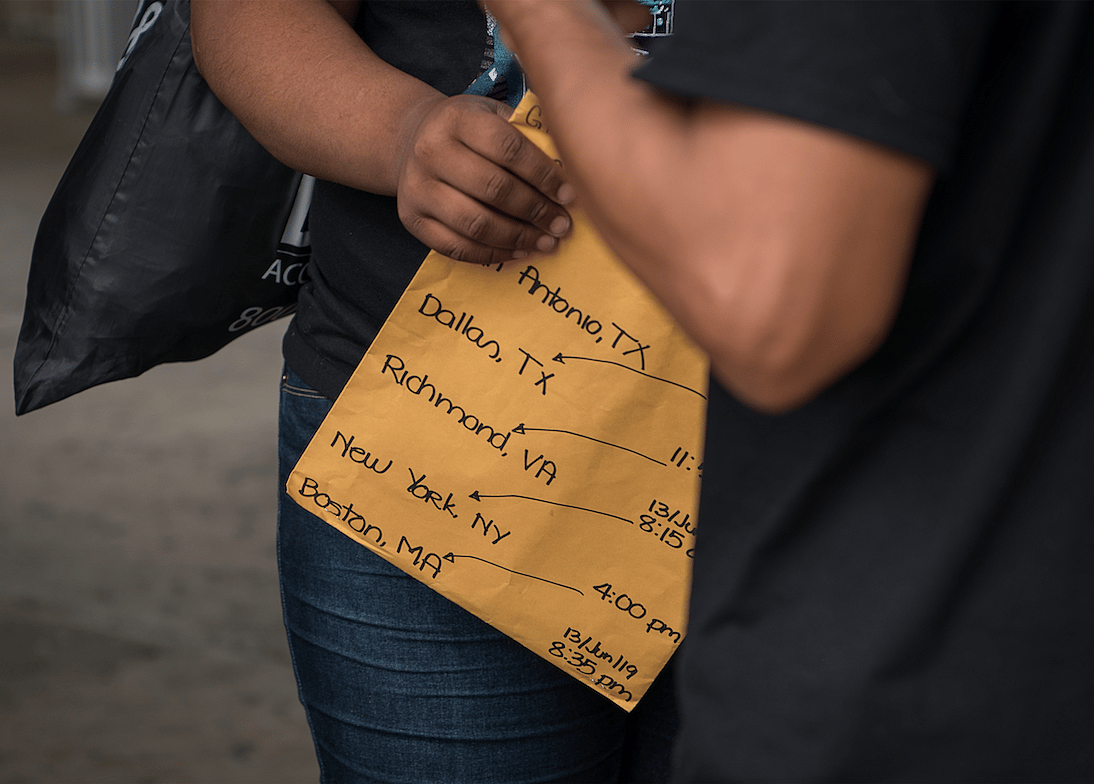 Antonio, TX
Dallas, TX
Richmond, VA
11:
New York, NY
13/Ju
8:15
Boston, MA
4:00 pm
13/Jun/19
8:35 pm
ACC
80